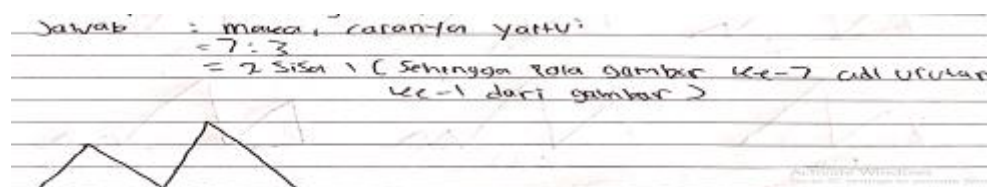 Jawab : maka, caranya yaitu:
= 7 : 3
= 2 sisa 1 ( sehingga pola gambar ke-7 adl urutan
ke-1 dari gambar )
Activate Windows